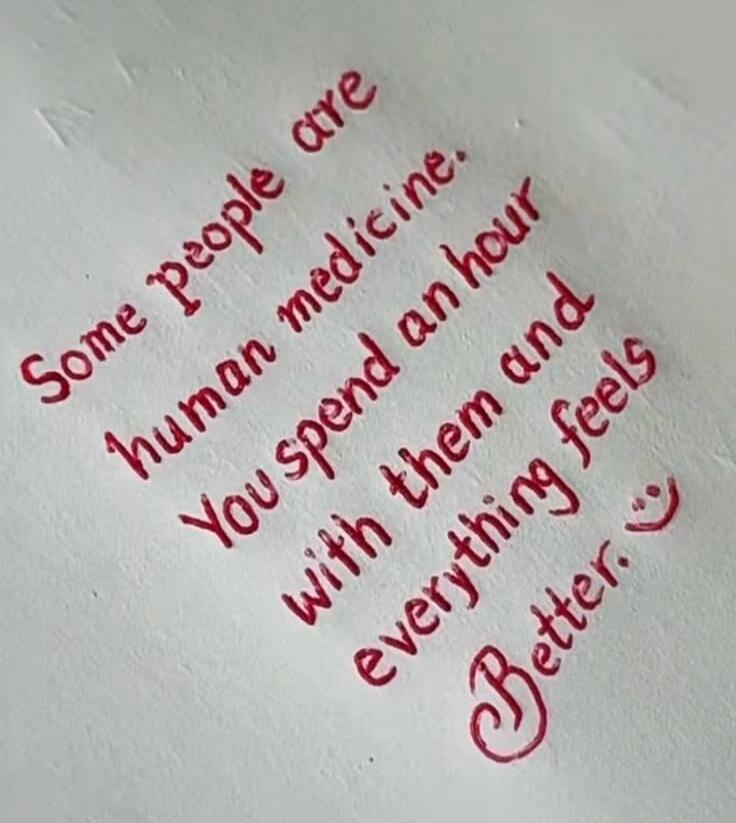 Some people are
human medicine.
You spend an hour
with them and
everything feels
Better. :)